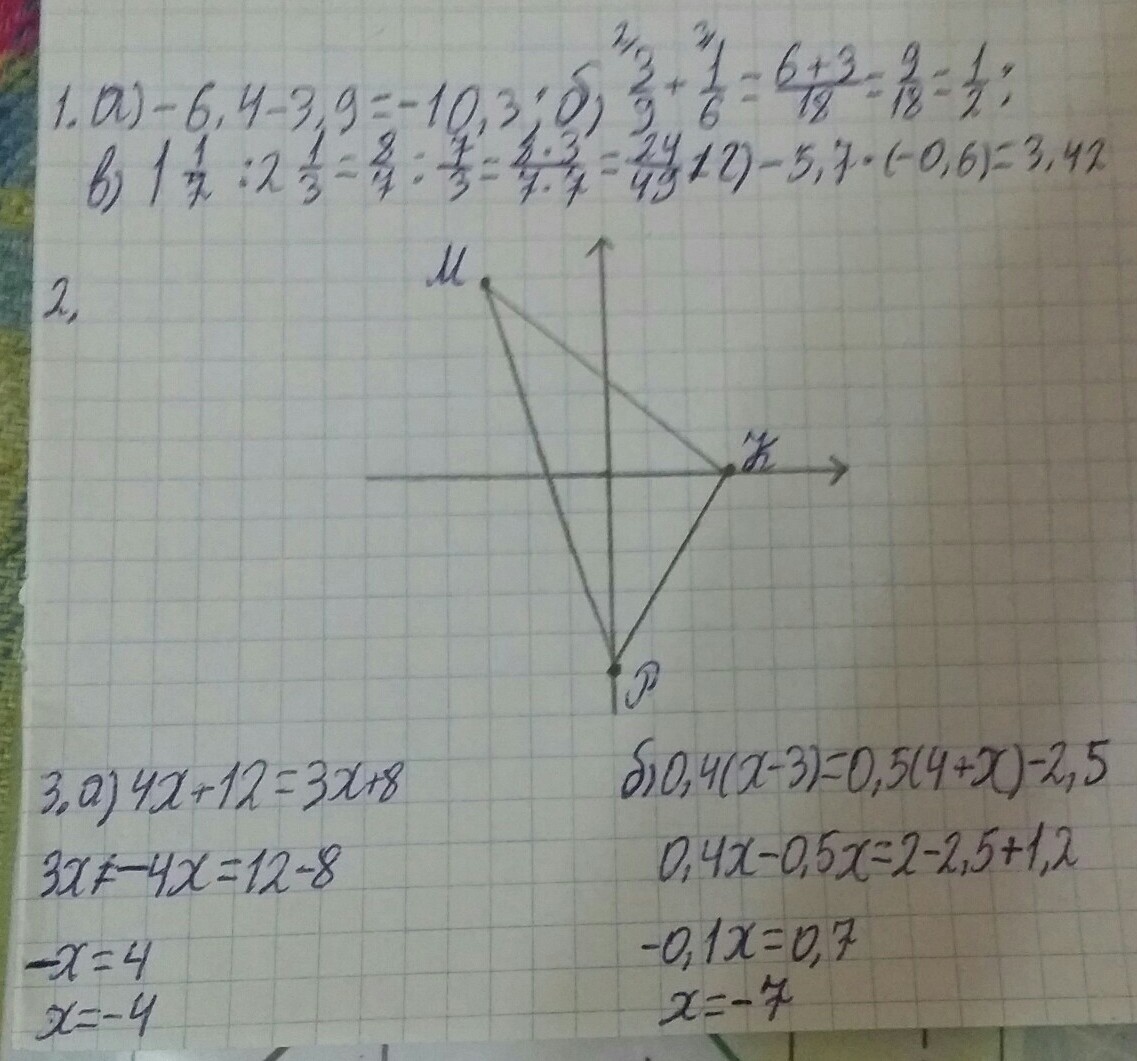 1. а) -6,4-3,9=-10,3; б) 2/ 3/9 + 3/ 1/6 = (6+3)/18 = 9/18 = 1/2;
в) 1 1/7 : 2 1/3 = 8/7 : 7/3 = (8·3)/(7·7) = 24/49; г) -5,7·(-0,6)=3,42
2.
М
К
Р
3. а) 4х+12=3х+8
3х-4х=12-8
-х=4
х=-4
б) 0,4(х-3)=0,5(4+х)-2,5
0,4х-0,5х=2-2,5+1,2
-0,1х=0,7
х=-7